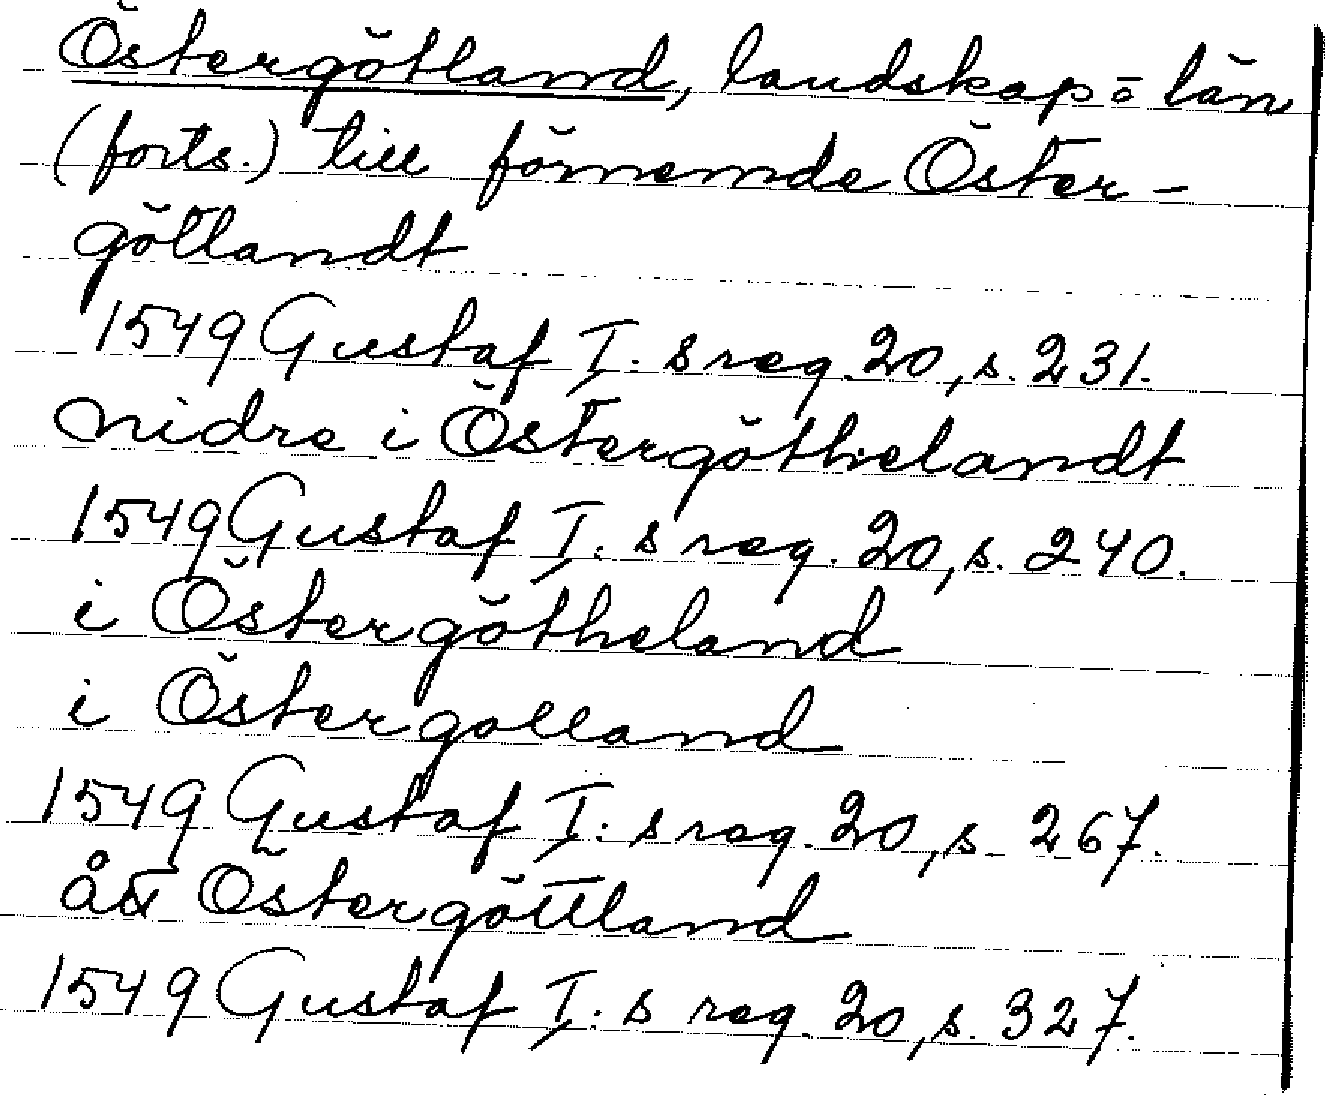 Östergötland, landskap o län
(forts.) till förnemde Öster-
götlandt
1549 Gustaf I:s reg. 20, s. 231.
nidre i Östergöthelandt
1549 Gustaf I:s reg. 20, s. 240.
i Östergötheland
i Östergolland
1549 Gustaf I:s reg. 20, s. 267.
ått Östergöttland
1549 Gustaf I:s reg. 20, s. 327.